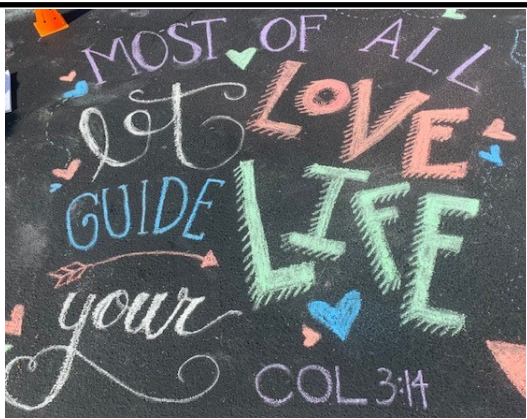 MOST OF ALL
let LOVE
GUIDE
your LIFE
COL 3:14